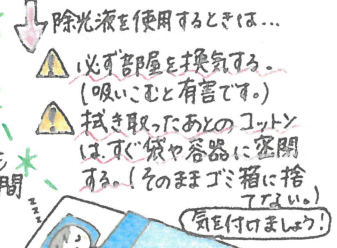 除光液を使用するときは…
必ず部屋を換気する。
(吸いこむと有害です。)
拭き取ったあとのコットン
は、すぐ袋や容器に密閉
する。(そのままゴミ箱に捨
てない。)
気を付けましょう!
間
zzz